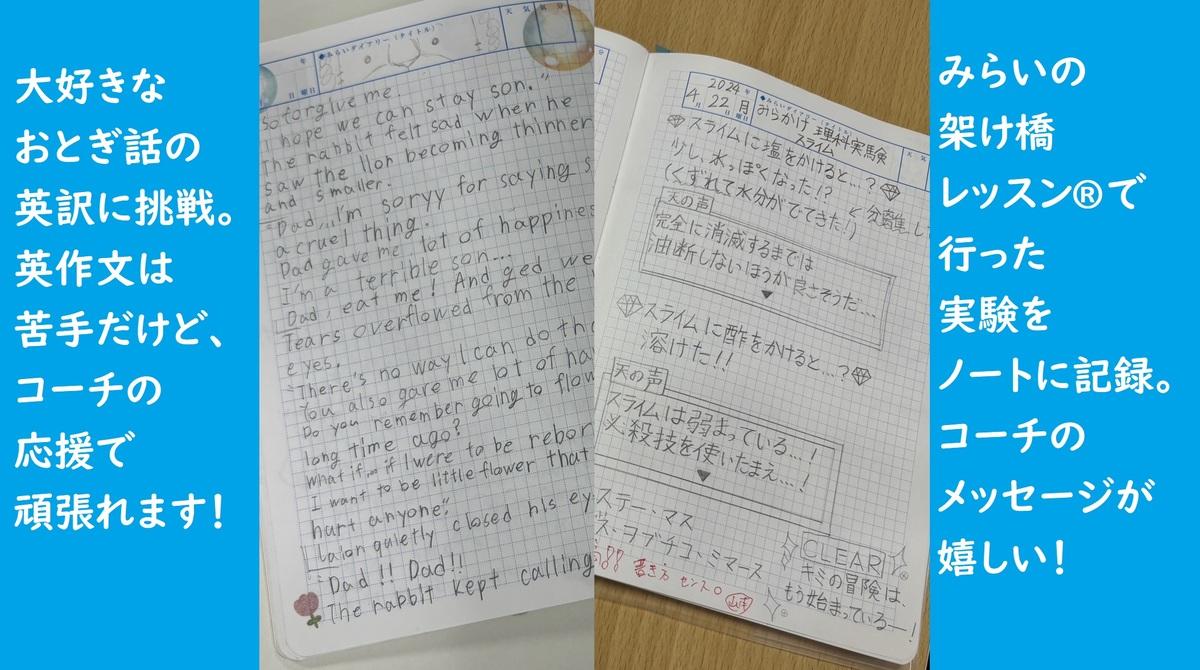 大好きな
おとぎ話の
英訳に挑戦。
英作文は
苦手だけど、
コーチの
応援で
頑張れます!
年
◆みらいダイアリー(タイトル)
天気
気分
月
日
曜日
so forgive me.
I hope we can stay son."
The rabbit felt sad when he
saw the lion becoming thinner
and smaller.
"Dad,,,I'm soryy for saying s
a cruel thing.
Dad gave me lot of happines
I'm a terrible son...
Dad eat me! And ged we
Tears overflowed from the
eyes.
"There's no way I can do tha
You also gave me lot of ha
Do you remember going to flow
long time ago?
What if,,, if I were to be rebor
I want to be little flower that
hurt anyone."
Laion quietly closed his ey
"Dad!! Dad!!
The rabbit kept calling
2024年
4月22日月曜日
◆みらいダイアリー(タイトル)
おうかげ 理科実験
スライム
天気
スライムに塩をかけると…?
少し、水っぽくなった!?
(くずれて水分がでてきた!)
天の声
完全に消滅するまでは
油断しないほうが良さそうだ…
▼
スライムに酢をかけると…?
溶けた!!
天の声
スライムは弱まっている…!
必殺技を使いたまえ…!
▼
ステー、マス
ス、ヲブチコ、ミマース
CLEAR
キミの冒険は、
もう始まっているー!
書き方 センス○
みらいの
架け橋
レッスン®で
行った
実験を
ノートに記録。
コーチの
メッセージが
嬉しい!